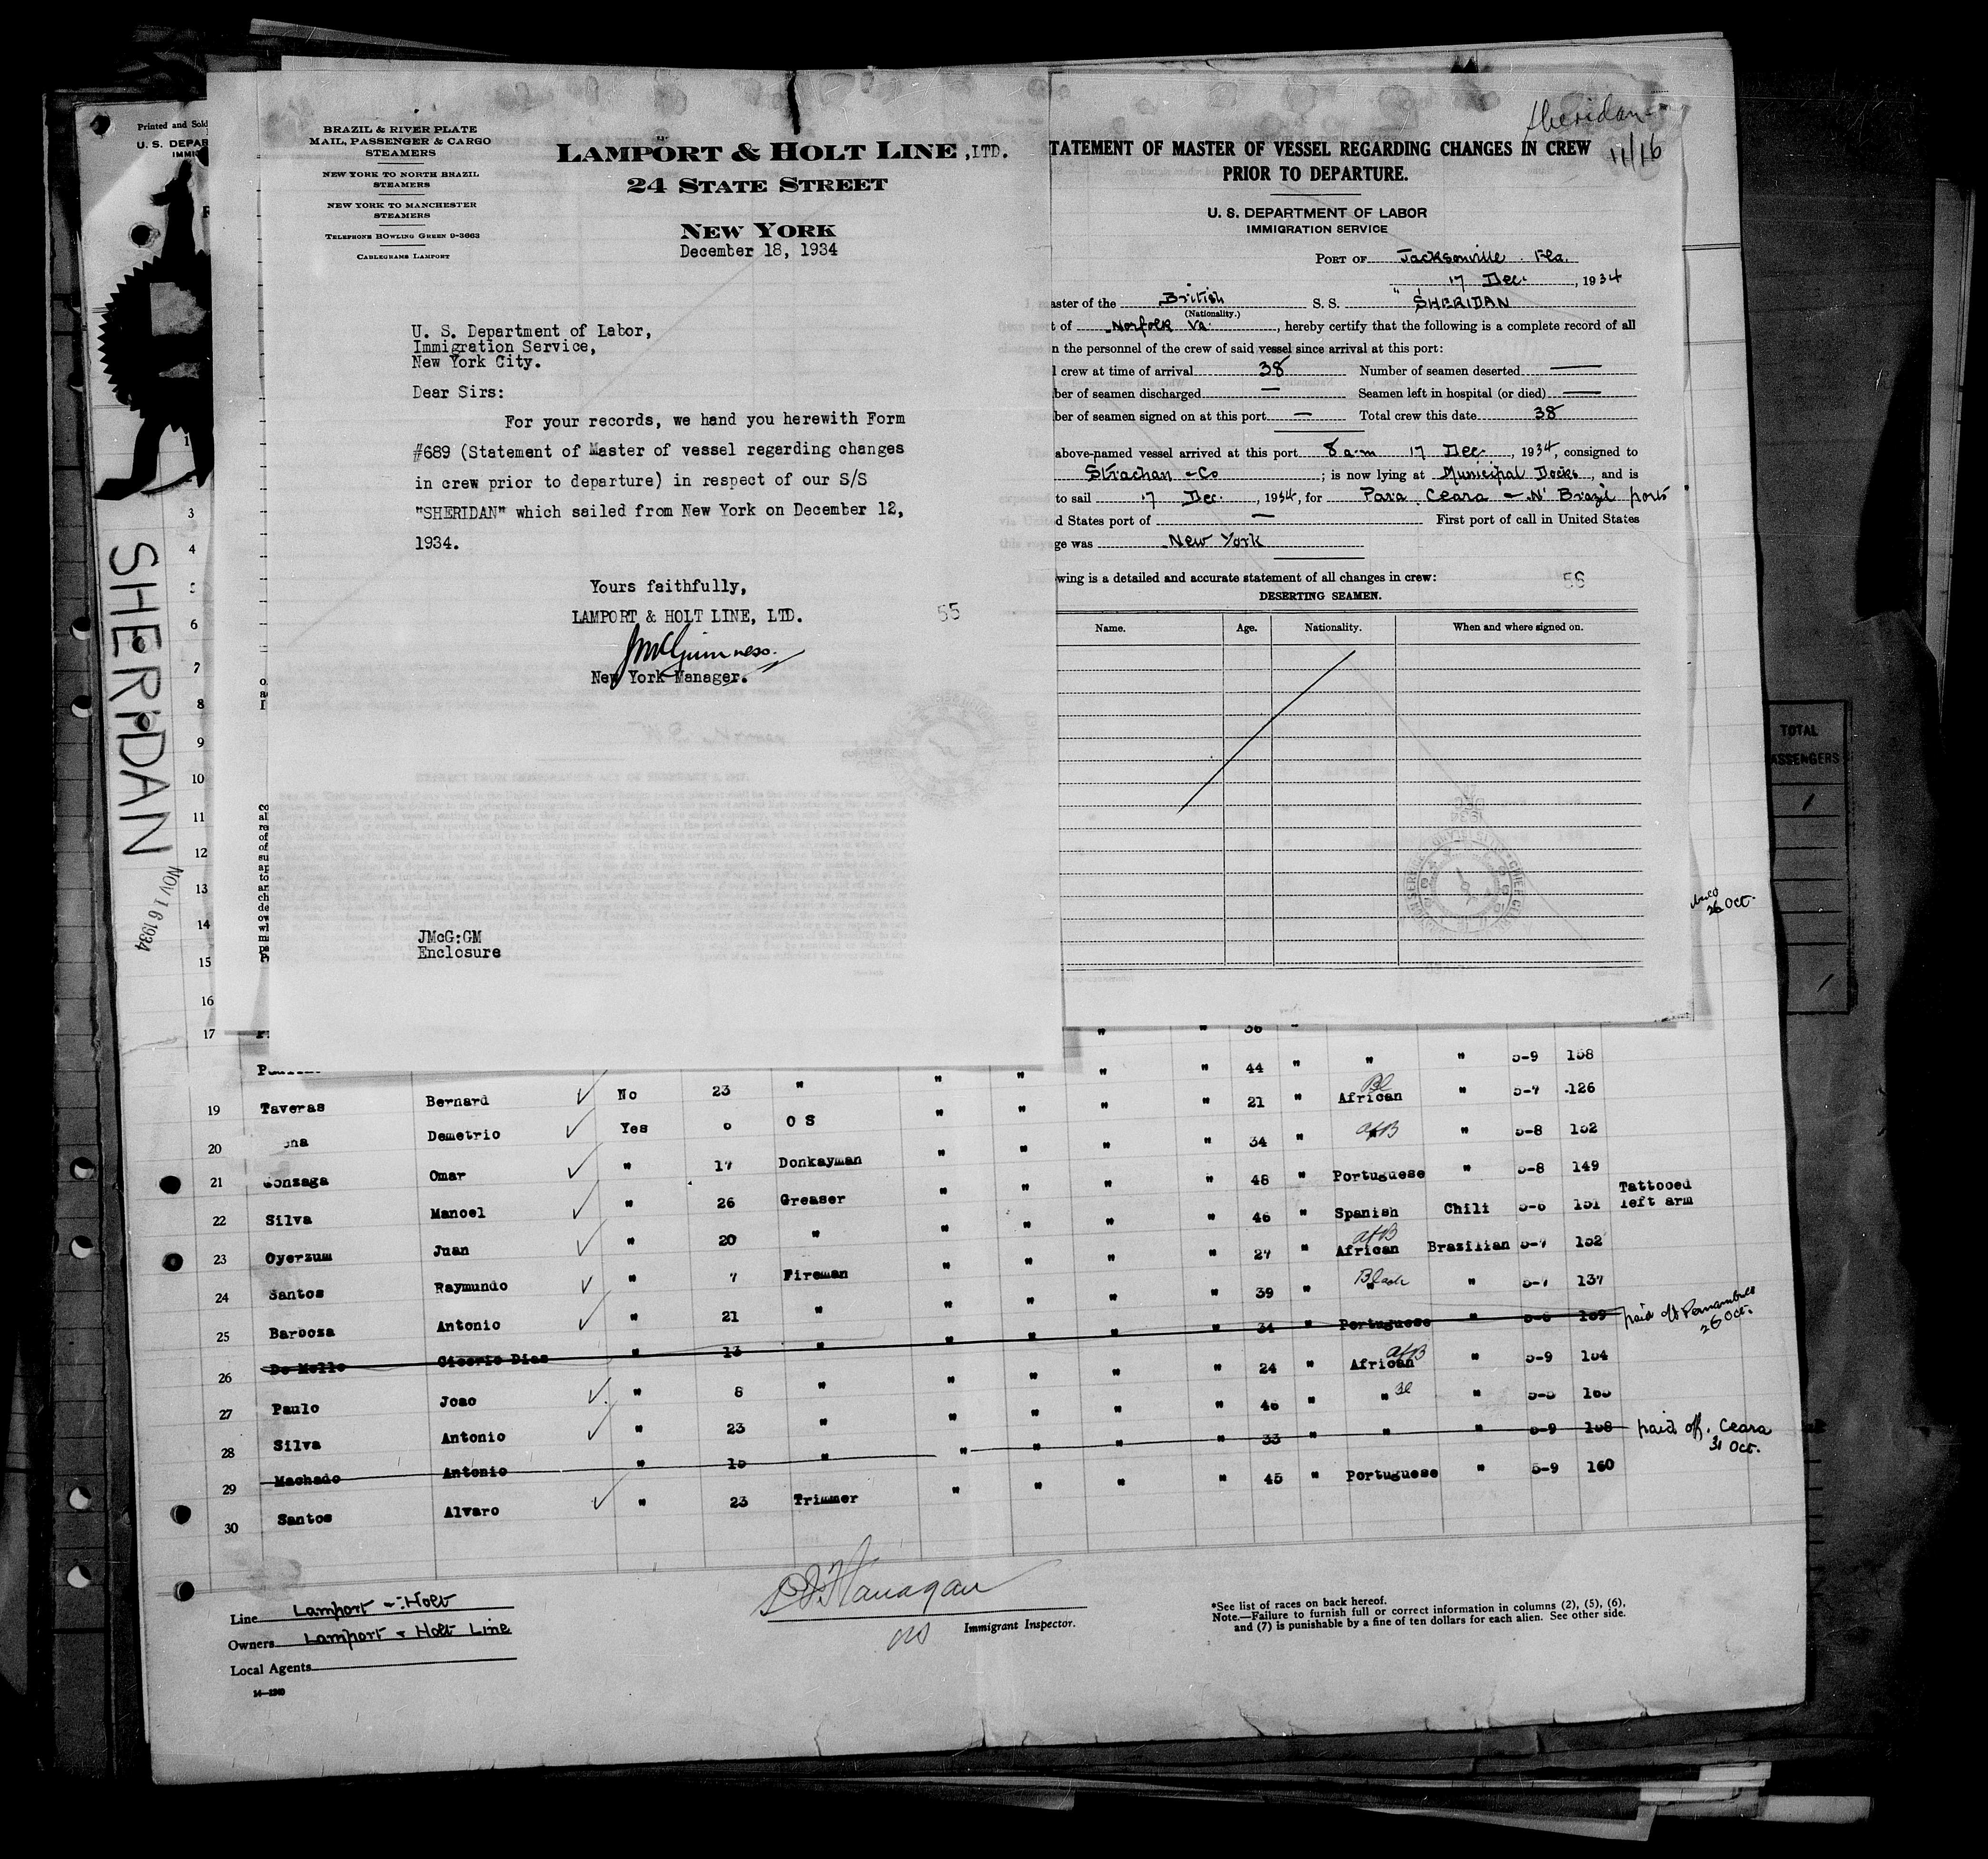 Printed and Sold
U. S. DEPAR
IMMIG
SHERIDAN
NOV 16 1934
BRAZIL & RIVER PLATE
MAIL, PASSENGER & CARGO
STEAMERS
NEW YORK TO NORTH BRAZIL
STEAMERS
NEW YORK TO MANCHESTER
STEAMERS
TELEPHONE BOWLING GREEN 9-3663
CABLEGRAMS LAMPORT
LAMPORT & HOLT LINE ,LTD.
24 STATE STREET
NEW YORK
December 18, 1934
U. S. Department of Labor,
Immigration Service,
New York City.
Dear Sirs:
For your records, we hand you herewith Form
#689 (Statement of Master of vessel regarding changes
in crew prior to departure) in respect of our S/S
"SHERIDAN" which sailed from New York on December 12,
1934.
Yours faithfully,
LAMPORT & HOLT LINE, LTD.
55
JMcGuinness.
New York Manager.
JMcG:GM
Enclosure
Sheridan
11/16
TATEMENT OF MASTER OF VESSEL REGARDING CHANGES IN CREW
PRIOR TO DEPARTURE.
U. S. DEPARTMENT OF LABOR
IMMIGRATION SERVICE
PORT OF Jacksonville Fla.
17 Dec. , 1934
aster of the British S. S. "SHERIDAN
(Nationality.)
t of Norfolk Va. , hereby certify that the following is a complete record of all
n the personnel of the crew of said vessel since arrival at this port:
l crew at time of arrival 38 Number of seamen deserted —
ber of seamen discharged — Seamen left in hospital (or died) —
ber of seamen signed on at this port — Total crew this date 38
above-named vessel arrived at this port 8 a.m 17 Dec. , 1934, consigned to
Strachan & Co ; is now lying at Municipal Docks , and is
to sail 17 Dec. , 1934, for Para Ceara & N' Brazil ports
d States port of — First port of call in United States
ge was New York
wing is a detailed and accurate statement of all changes in crew:
56
DESERTING SEAMEN.
Name. Age. Nationality. When and where signed on.
TOTAL
ASSENGERS
1
1
26 Oct.
3
4
5
6
7
8
9
10
11
12
13
14
15
16
17 " " 36
44 " " " 5-9 158
19 Taveras Bernard ✓ No 23 " " " " " 21 " African Bl " 5-7 126
20 Demetrio ✓ Yes 6 O S " " " " 34 " " AfB " 5-8 152
21 Gonzaga Omar ✓ " 17 Donkayman " " " " 48 " Portuguese " 5-8 149
22 Silva Manoel ✓ " 26 Greaser " " " " 46 " Spanish Chili 5-6 151 Tattooed left arm
23 Oyerzum Juan ✓ " 20 " " " " " 27 " African AfB Brazilian 5-7 152
24 Santos Raymundo ✓ " 7 Fireman " " " " 39 " " Black " 5-7 137
25 Barboza Antonio ✓ " 21 " " " " " 34 " Portuguese " 5-6 159 paid off Pernambuco 26 Oct.
26 De Mello Cicerio Dias " 13 " " " " " 24 " African AfB " 5-9 154
27 Paulo Joao ✓ " 8 " " " " " 46 " " Bl " 5-5 165
28 Silva Antonio ✓ " 23 " " " " " 33 " " " 5-9 158 paid off. Ceara 31 Oct.
29 Machado Antonio " 15 " " " " " 45 " Portuguese " 5-9 160
30 Santos Alvaro ✓ " 23 Trimmer " " "
Line Lamport & Holt
Owners Lamport & Holt Line
Local Agents
14—1240
Flanagan
Immigrant Inspector.
*See list of races on back hereof.
Note.—Failure to furnish full or correct information in columns (2), (5), (6),
and (7) is punishable by a fine of ten dollars for each alien. See other side.